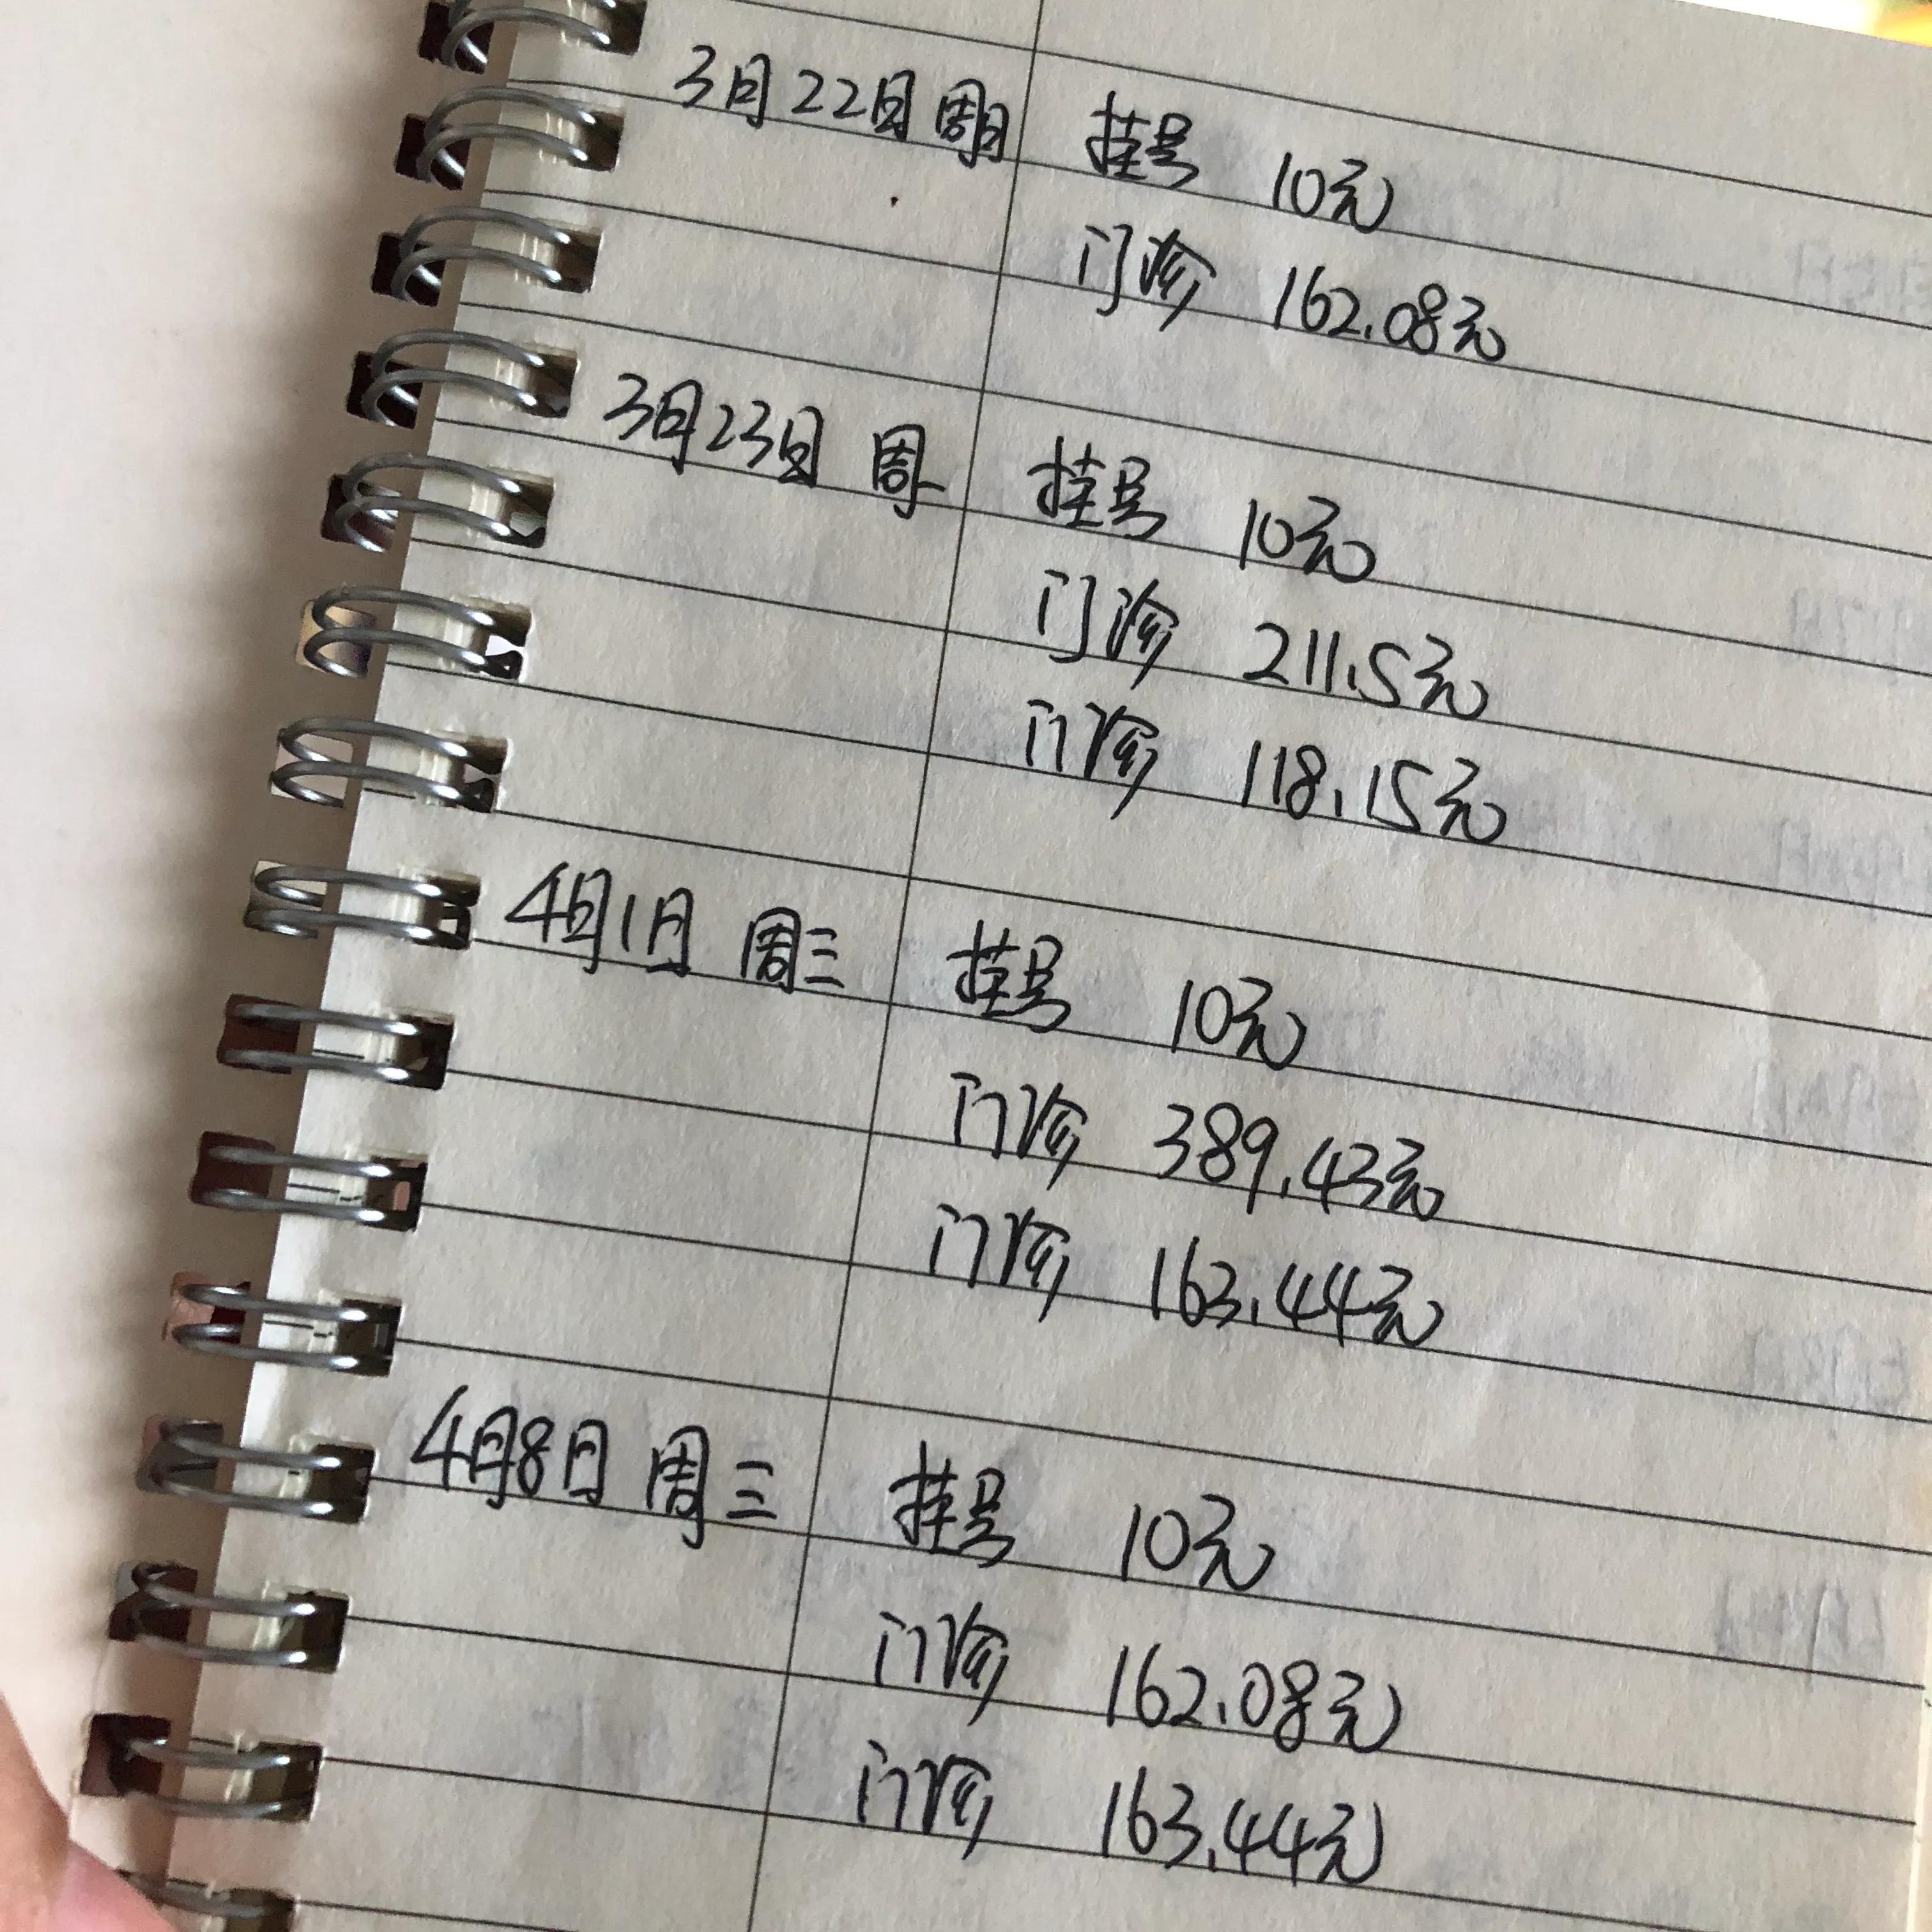 3月22日 周日 挂号 10元
门诊 162.08元
3月23日 周一 挂号 10元
门诊 211.5元
门诊 118.15元
4月1日 周三 挂号 10元
门诊 389.43元
门诊 163.44元
4月8日 周三 挂号 10元
门诊 162.08元
门诊 163.44元